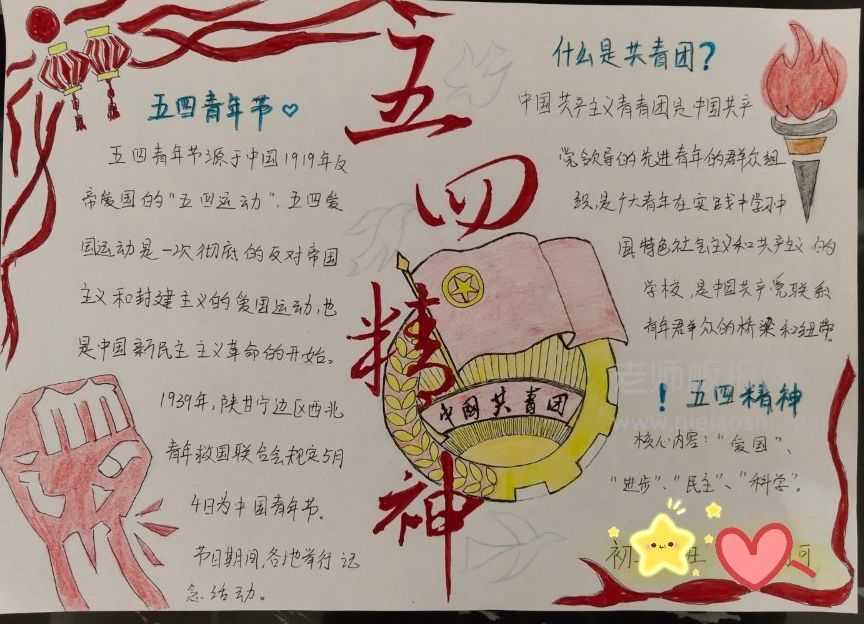 五四精神
五四青年节
五四青年节源于中国1919年反
帝爱国的"五四运动"，五四爱
国运动是一次彻底的反对帝国
主义和封建主义的爱国运动，也
是中国新民主主义革命的开始。
1939年，陕甘宁边区西北
青年救国联合会规定5月
4日为中国青年节。
节日期间，各地举行记
念活动。
中国共青团
什么是共青团？
中国共产主义青青团是中国共产
党领导的先进青年的群众组
织，是广大青年在实践中学习中
国特色社会主义和共产主义的
学校，是中国共产党联系
青年群众的桥梁和纽带。
老师板报网
www.mielaoshi.com
！五四精神
核心内容："爱国"、
"进步"、"民主"、"科学"。
初